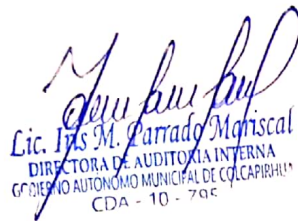 Lic. Iris M. Parrado Mariscal
DIRECTORA DE AUDITORIA INTERNA
GOBIERNO AUTONOMO MUNICIPAL DE COLCAPIRHUA
CDA - 10 - 795